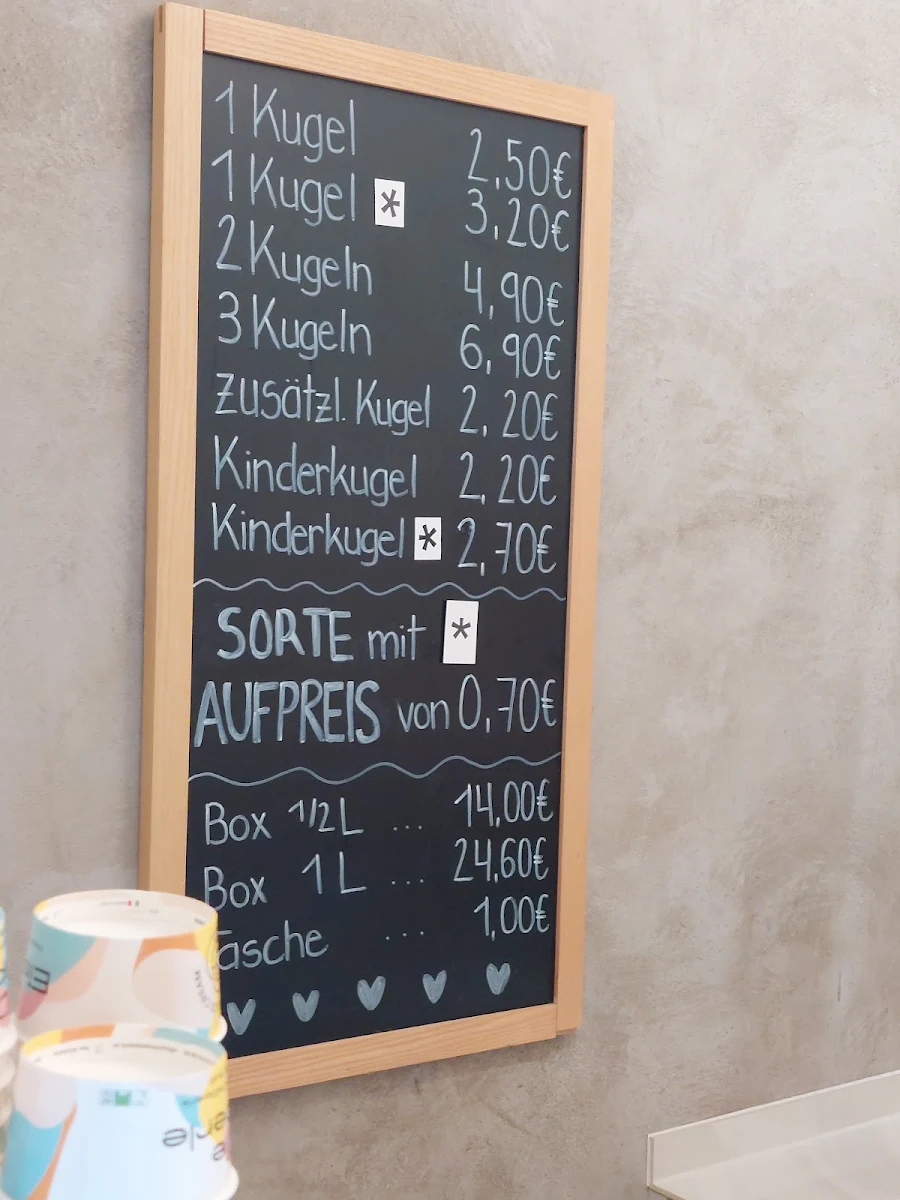 1 Kugel 2,50€
1 Kugel * 3,20€
2 Kugeln 4,90€
3 Kugeln 6,90€
zusätzl. Kugel 2,20€
Kinderkugel 2,20€
Kinderkugel * 2,70€
SORTE mit *
AUFPREIS von 0,70€
Box 1/2 L ... 14,00€
Box 1 L ... 24,60€
Tasche ... 1,00€